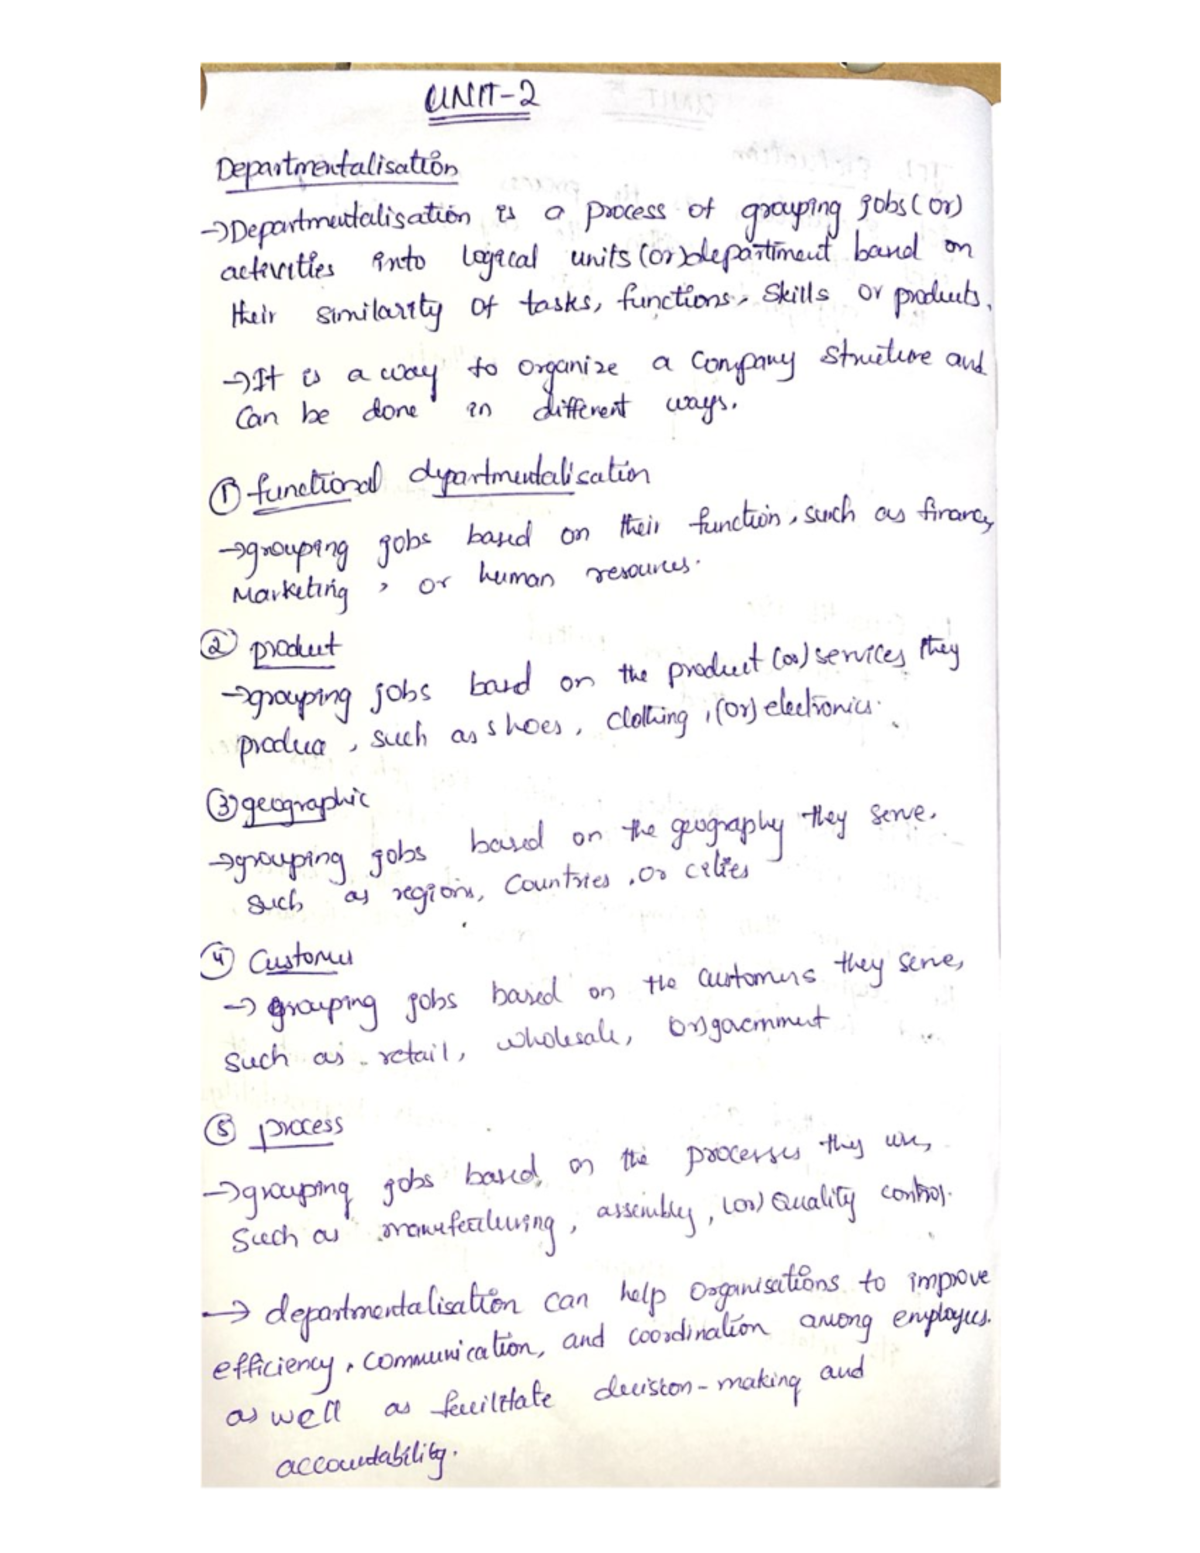 UNIT-2
Departmentalisation
→Departmentalisation is a process of grouping jobs (or)
activities into logical units (or) department based on
their similarity of tasks, functions, skills or products.
→It is a way to organize a company structure and
can be done in different ways.
① functional departmentalisation
→grouping jobs based on their function, such as finance,
Marketing, or human resources.
② product
→grouping jobs based on the product (or) services they
produce, such as shoes, clothing, (or) electronics.
③ geographic
→grouping jobs based on the geography they serve.
such as regions, countries, or cities
④ Customer
→ grouping jobs based on the customers they serve,
such as retail, wholesale, (or) government
⑤ process
→grouping jobs based on the processes they use,
Such as manufacturing, assembly, (or) Quality control.
→ departmentalisation can help organisations to improve
efficiency, communication, and coordination among employees.
as well as facilitate decision-making and
accountability.